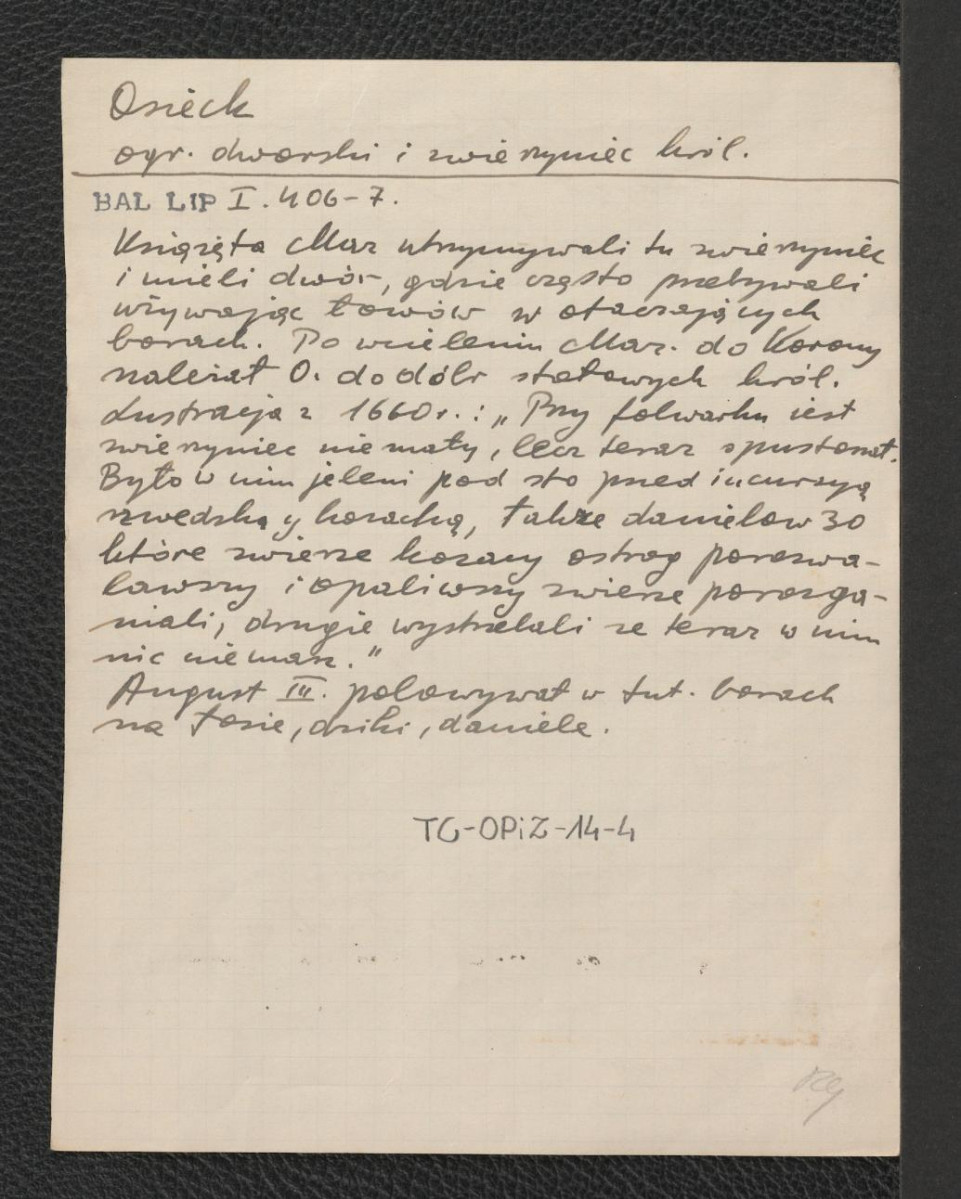 Osieck
ogr. dworski i zwierzyniec król.
BAL LIP I. 406-7.
Książęta Maz utrzymywali tu zwierzyniec
i mieli dwór, gdzie często przebywali
używając łowów w otaczających
borach. Po wcieleniu Maz. do Korony
należał O. do dóbr stołowych król.
Lustracja z 1660 r. : „Przy folwarku iest
zwierzyniec nie mały, lecz teraz spustoszał.
Było w nim jeleni pod sto przed incursyą
szwedską y kozacką, także danielow 30
które zwierze kozacy ostrog porozwa-
lawszy i opaliwszy zwierze porozga-
niali, drugie wystrzelali ze teraz w nim
nic nie masz."
August III. polowywał w tut. borach
na łosie, dziki, daniele.
TG-OPiZ-14-4